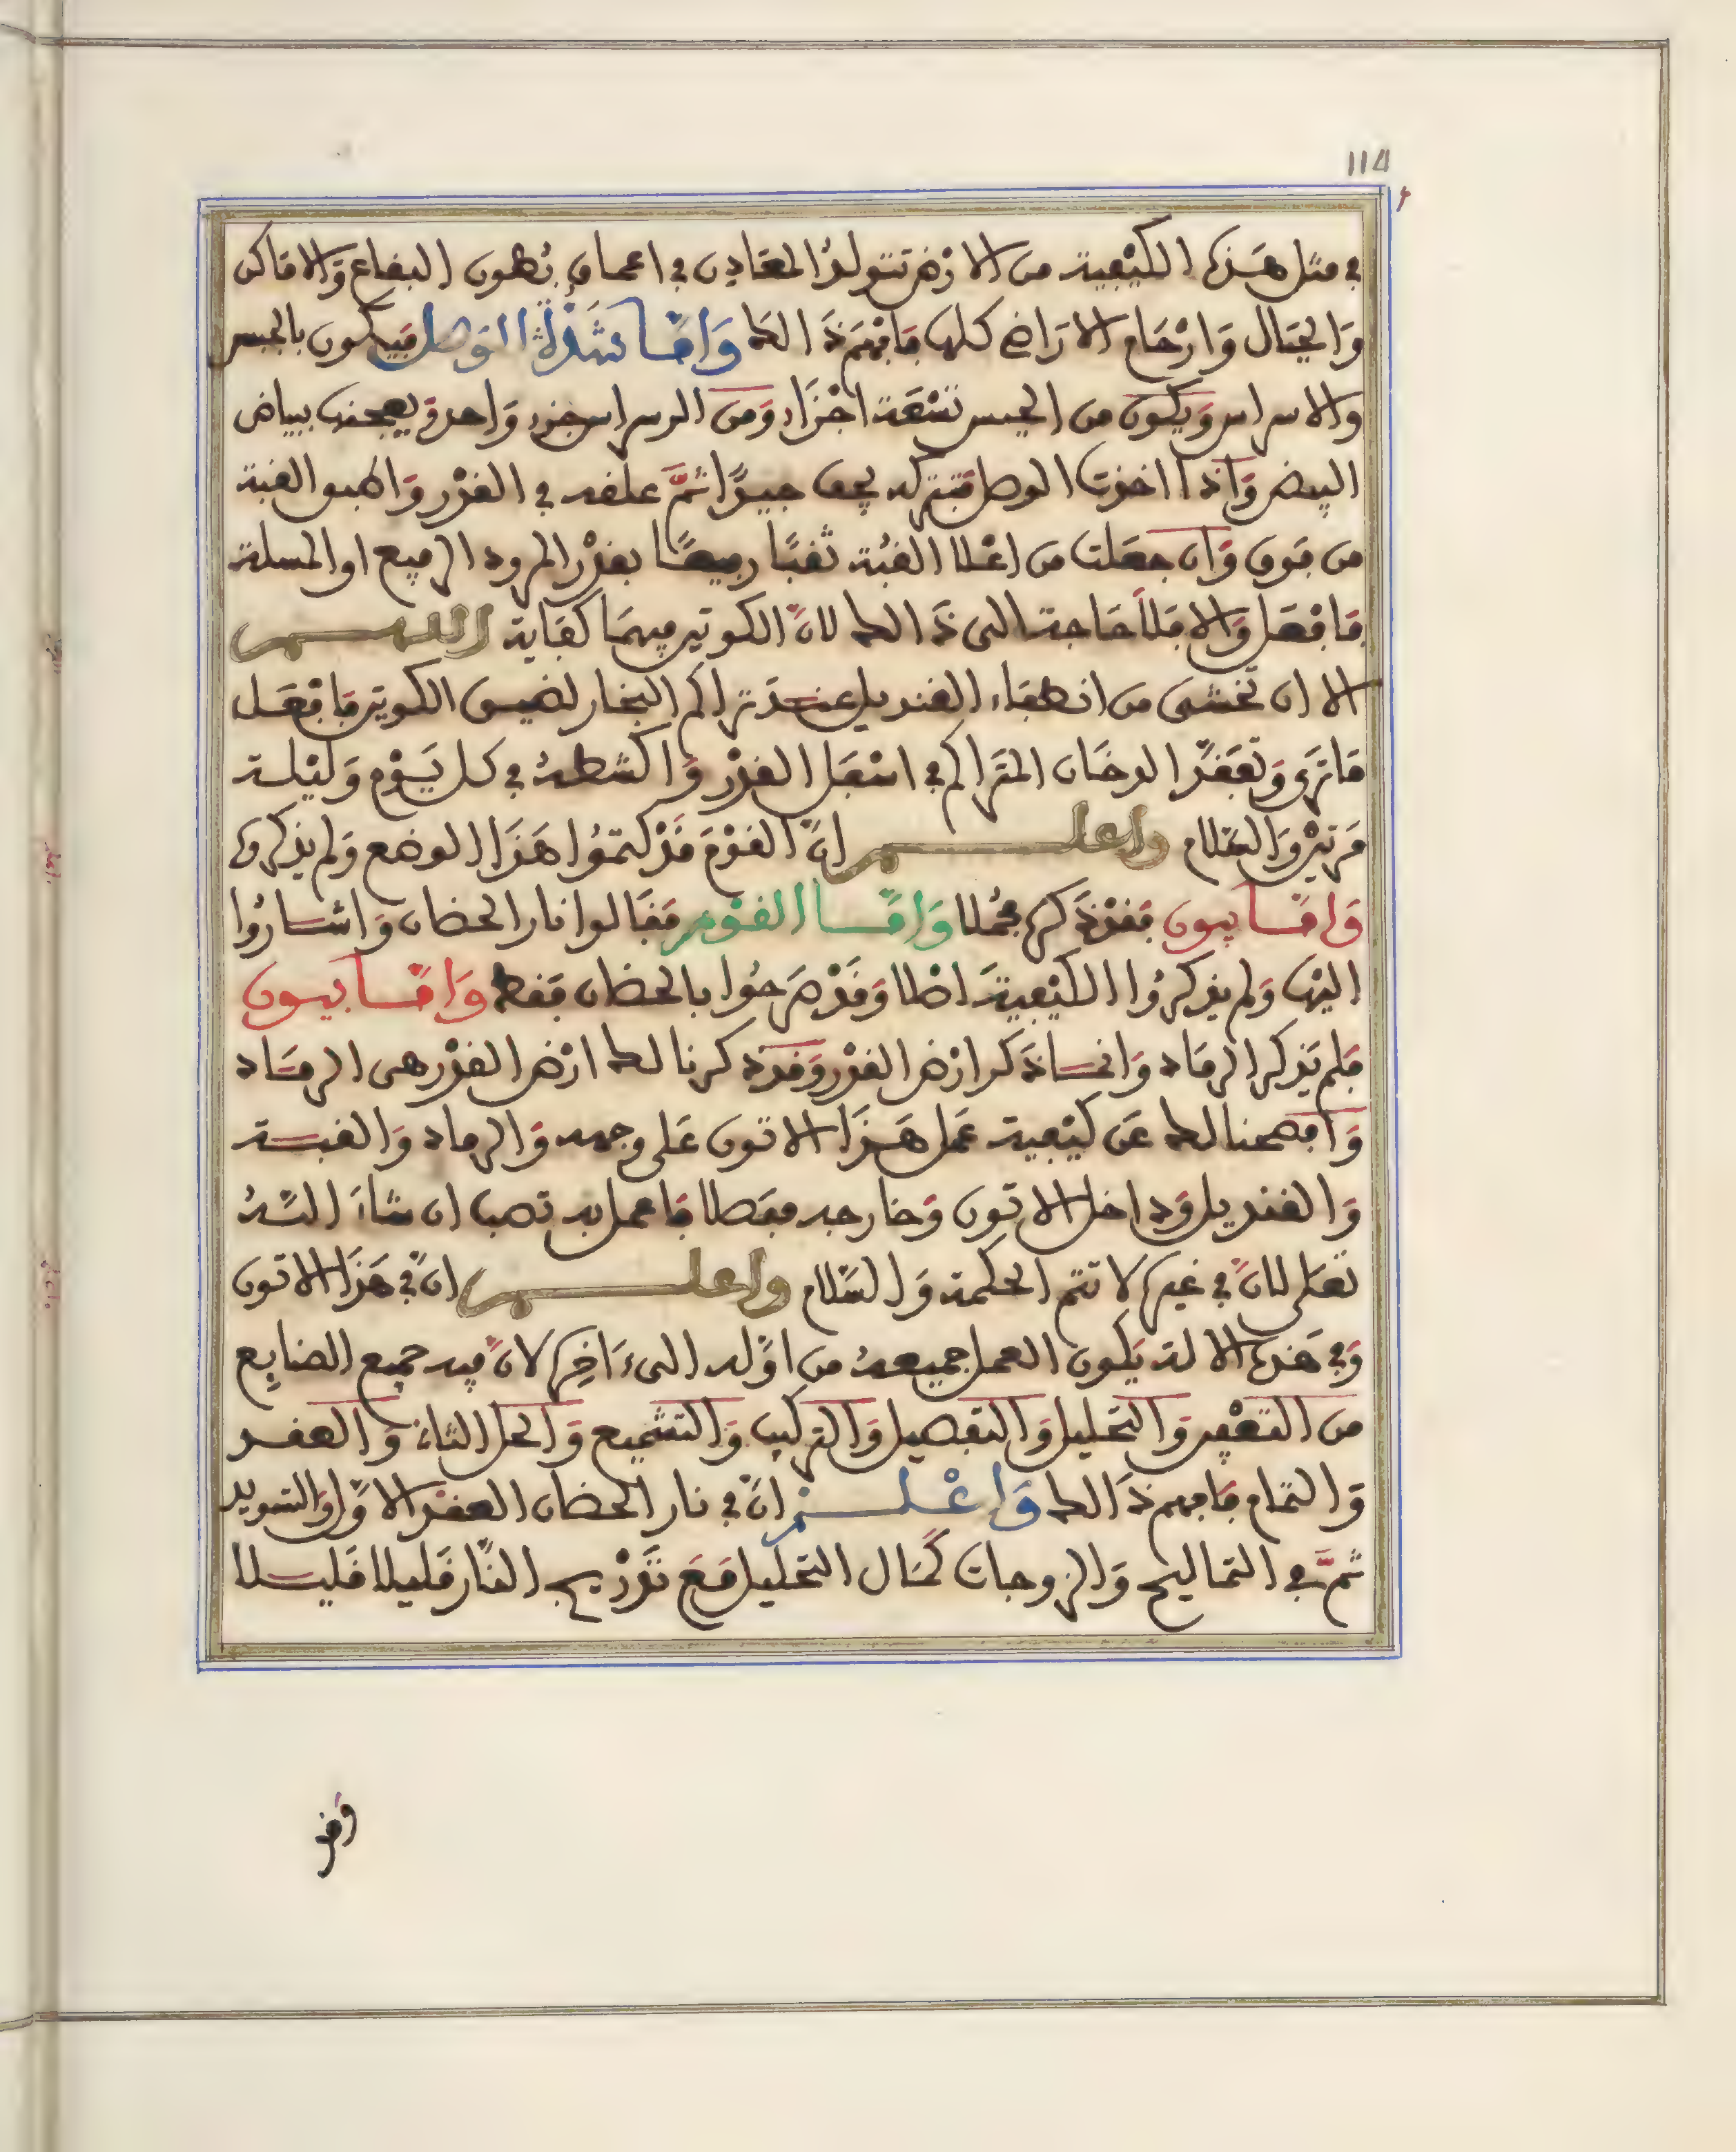 114
في مثل هذه الكيفية من الارض تتولد المعادن في اعماق بطون البقاع والاماكن
والجبال وارحام الاراضي كلها فافهم ذالك واما شدة الوصل فيكون بالجبس
والاسراس ويكون من الجبس تسعة اجزاء ومن السراس جزء واحد ويعجنها ببياض
البيض واذا اخذت الوصل فتتركه يجف جيدا ثم علقه في القدر واطبق القبة
من فوق وان جعلت من اعلا القبة ثقبا رفيعا بقدر المرود الرفيع او المسلة
فافعل والا فلا حاجة الى ذالك لان الكوتين فيهما كفاية اللهم
الا ان تخشى من انطفاء القنديل عند تراكم البخار لضيق الكوتين فافعل
ما ترى وتفقد الدخان المتراكم في اسفل القدر واكشطه في كل يوم وليلة
مرتين والسلام واعلم ان القوم قد كتموا هذا الوضع ولم يذكروه
واما بيون فقد ذكره مجملا واما القوم فقالوا نار الحضان واشاروا
اليها ولم يذكروا الكيفية اصلا وقد صرحوا بالحضان فقط واما بيون
فلم يذكر الرماد وانما ذكر ارض القدر وقد ذكرنا لك ارض القدر هي الرماد
وافصحنا لك عن كيفية عمل هذا الاتون على وجهه والرماد والقبة
والقنديل وداخل الاتون وخارجه مفصلا فاعمل به تصب ان شاء الله
تعلى لان في غيره لا تتم الحكمة والسلام واعلم ان في هذا الاتون
وفي هذه الالة يكون العمل جميعه من اوله الى ءاخره لان فيه جميع الصنايع
من التعفين والتحليل والتفصيل والتركيب والتشميع والحل الثاني والعقد
والتمام فافهم ذالك واعلم ان في نار الحضان العقد الاول والتسويد
ثم في التماليح والزوجات كمال التحليل مع تدريج النار قليلا قليلا
وقد